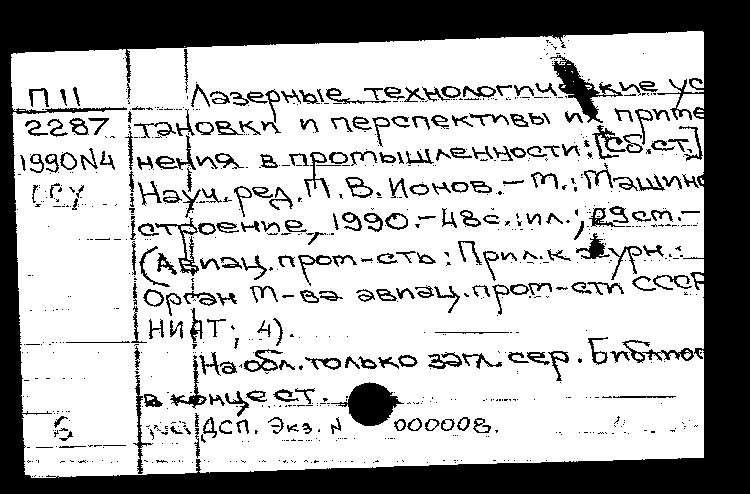 П 11 Лазерные технологические ус
2287 тановки и перспективы их приме
1990N4 нения в промышленности: [Сб.ст.]
Науч.ред. П.В. Ионов. – М.: Машино
строение, 1990. – 48с.: ил.; 29см. –
(Авиац.пром-сть: Прил.к журн.:
Орган М-ва авиац.пром-сти СССР
НИАТ; 4).
На обл. только загл. сер. Библиог
в конце ст.
Б ДСП. Экз. N 000008.